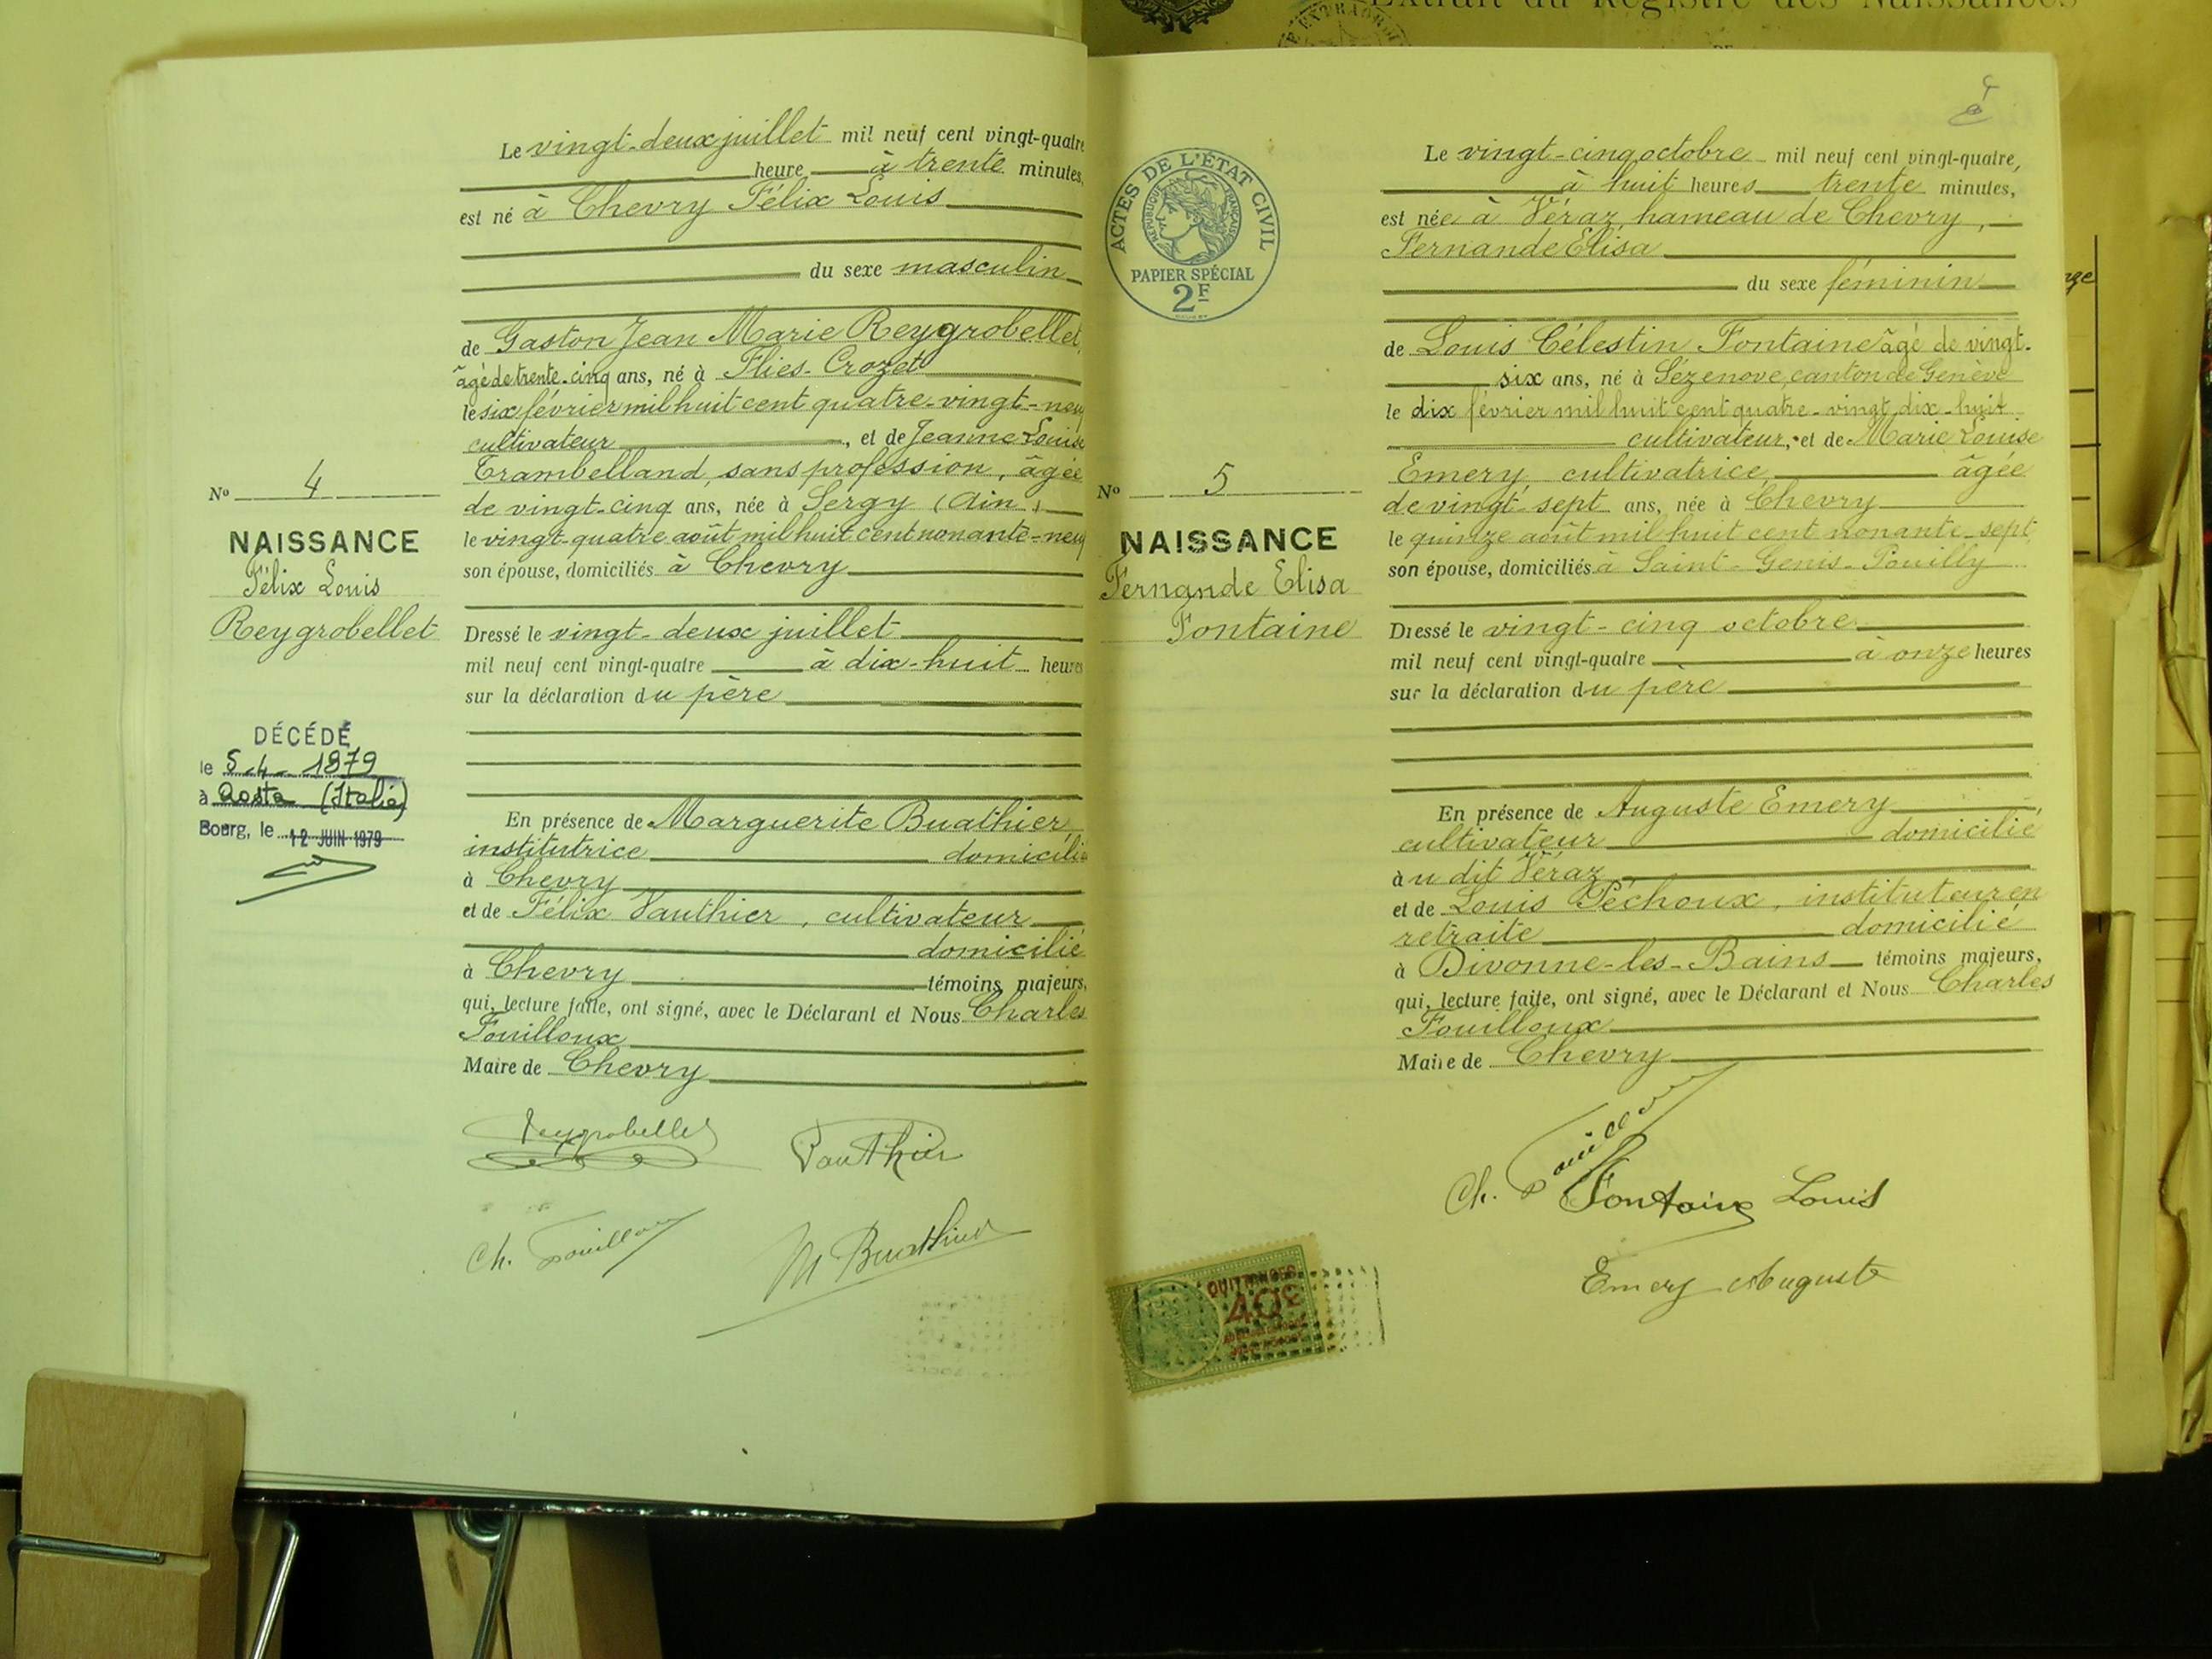 Extrait du Registre des Naissances
DE
Le vingt-deux juillet mil neuf cent vingt-quatre
heure à trente minutes,
est né à Chevry Félix Louis
du sexe masculin
de Gaston Jean Marie Reygrobellet,
âgé de trente-cinq ans, né à Flies-Crozet
le six février mil huit cent quatre-vingt-neuf
cultivateur, et de Jeanne Louise
Trambelland, sans profession, âgée
de vingt-cinq ans, née à Sergy (Ain)
le vingt-quatre août mil huit cent nonante-neuf
son épouse, domiciliés à Chevry
Dressé le vingt-deux juillet
mil neuf cent vingt-quatre à dix-huit heures
sur la déclaration du père
En présence de Marguerite Buathier,
institutrice domicilié
à Chevry
et de Félix Vauthier, cultivateur
domicilié
à Chevry témoins majeurs,
qui, lecture faite, ont signé, avec le Déclarant et Nous Charles
Fouilloux
Maire de Chevry
Reygrobellet
Vauthier
Ch. Fouilloux
M Buathier
No 4
NAISSANCE
Félix Louis
Reygrobellet
DÉCÉDÉ
le 5-4-1979
à Aosta (Italie)
Bourg, le 12 JUIN 1979
ACTES DE L'ÉTAT CIVIL
RÉPUBLIQUE FRANÇAISE
PAPIER SPÉCIAL
2F
No 5
NAISSANCE
Fernande Elisa
Fontaine
Le vingt-cinq octobre mil neuf cent vingt-quatre,
à huit heures trente minutes,
est née à Véraz, hameau de Chevry,
Fernande Elisa
du sexe féminin
de Louis Célestin Fontaine âgé de vingt-
six ans, né à Sézenove, canton de Genève
le dix février mil huit cent quatre-vingt dix-huit
cultivateur, et de Marie Louise
Emery cultivatrice, âgée
de vingt-sept ans, née à Chevry
le quinze août mil huit cent nonante-sept
son épouse, domiciliés à Saint-Genis-Pouilly
Dressé le vingt-cinq octobre
mil neuf cent vingt-quatre à onze heures
sur la déclaration du père
En présence de Auguste Emery
cultivateur domicilié
àu dit Véraz
et de Louis Péchoux, instituteur en
retraite domicilié
à Divonne-les-Bains témoins majeurs,
qui, lecture faite, ont signé, avec le Déclarant et Nous Charles
Fouilloux
Maire de Chevry
Ch. Fouilloux
Fontaine Louis
Emery Auguste
40c